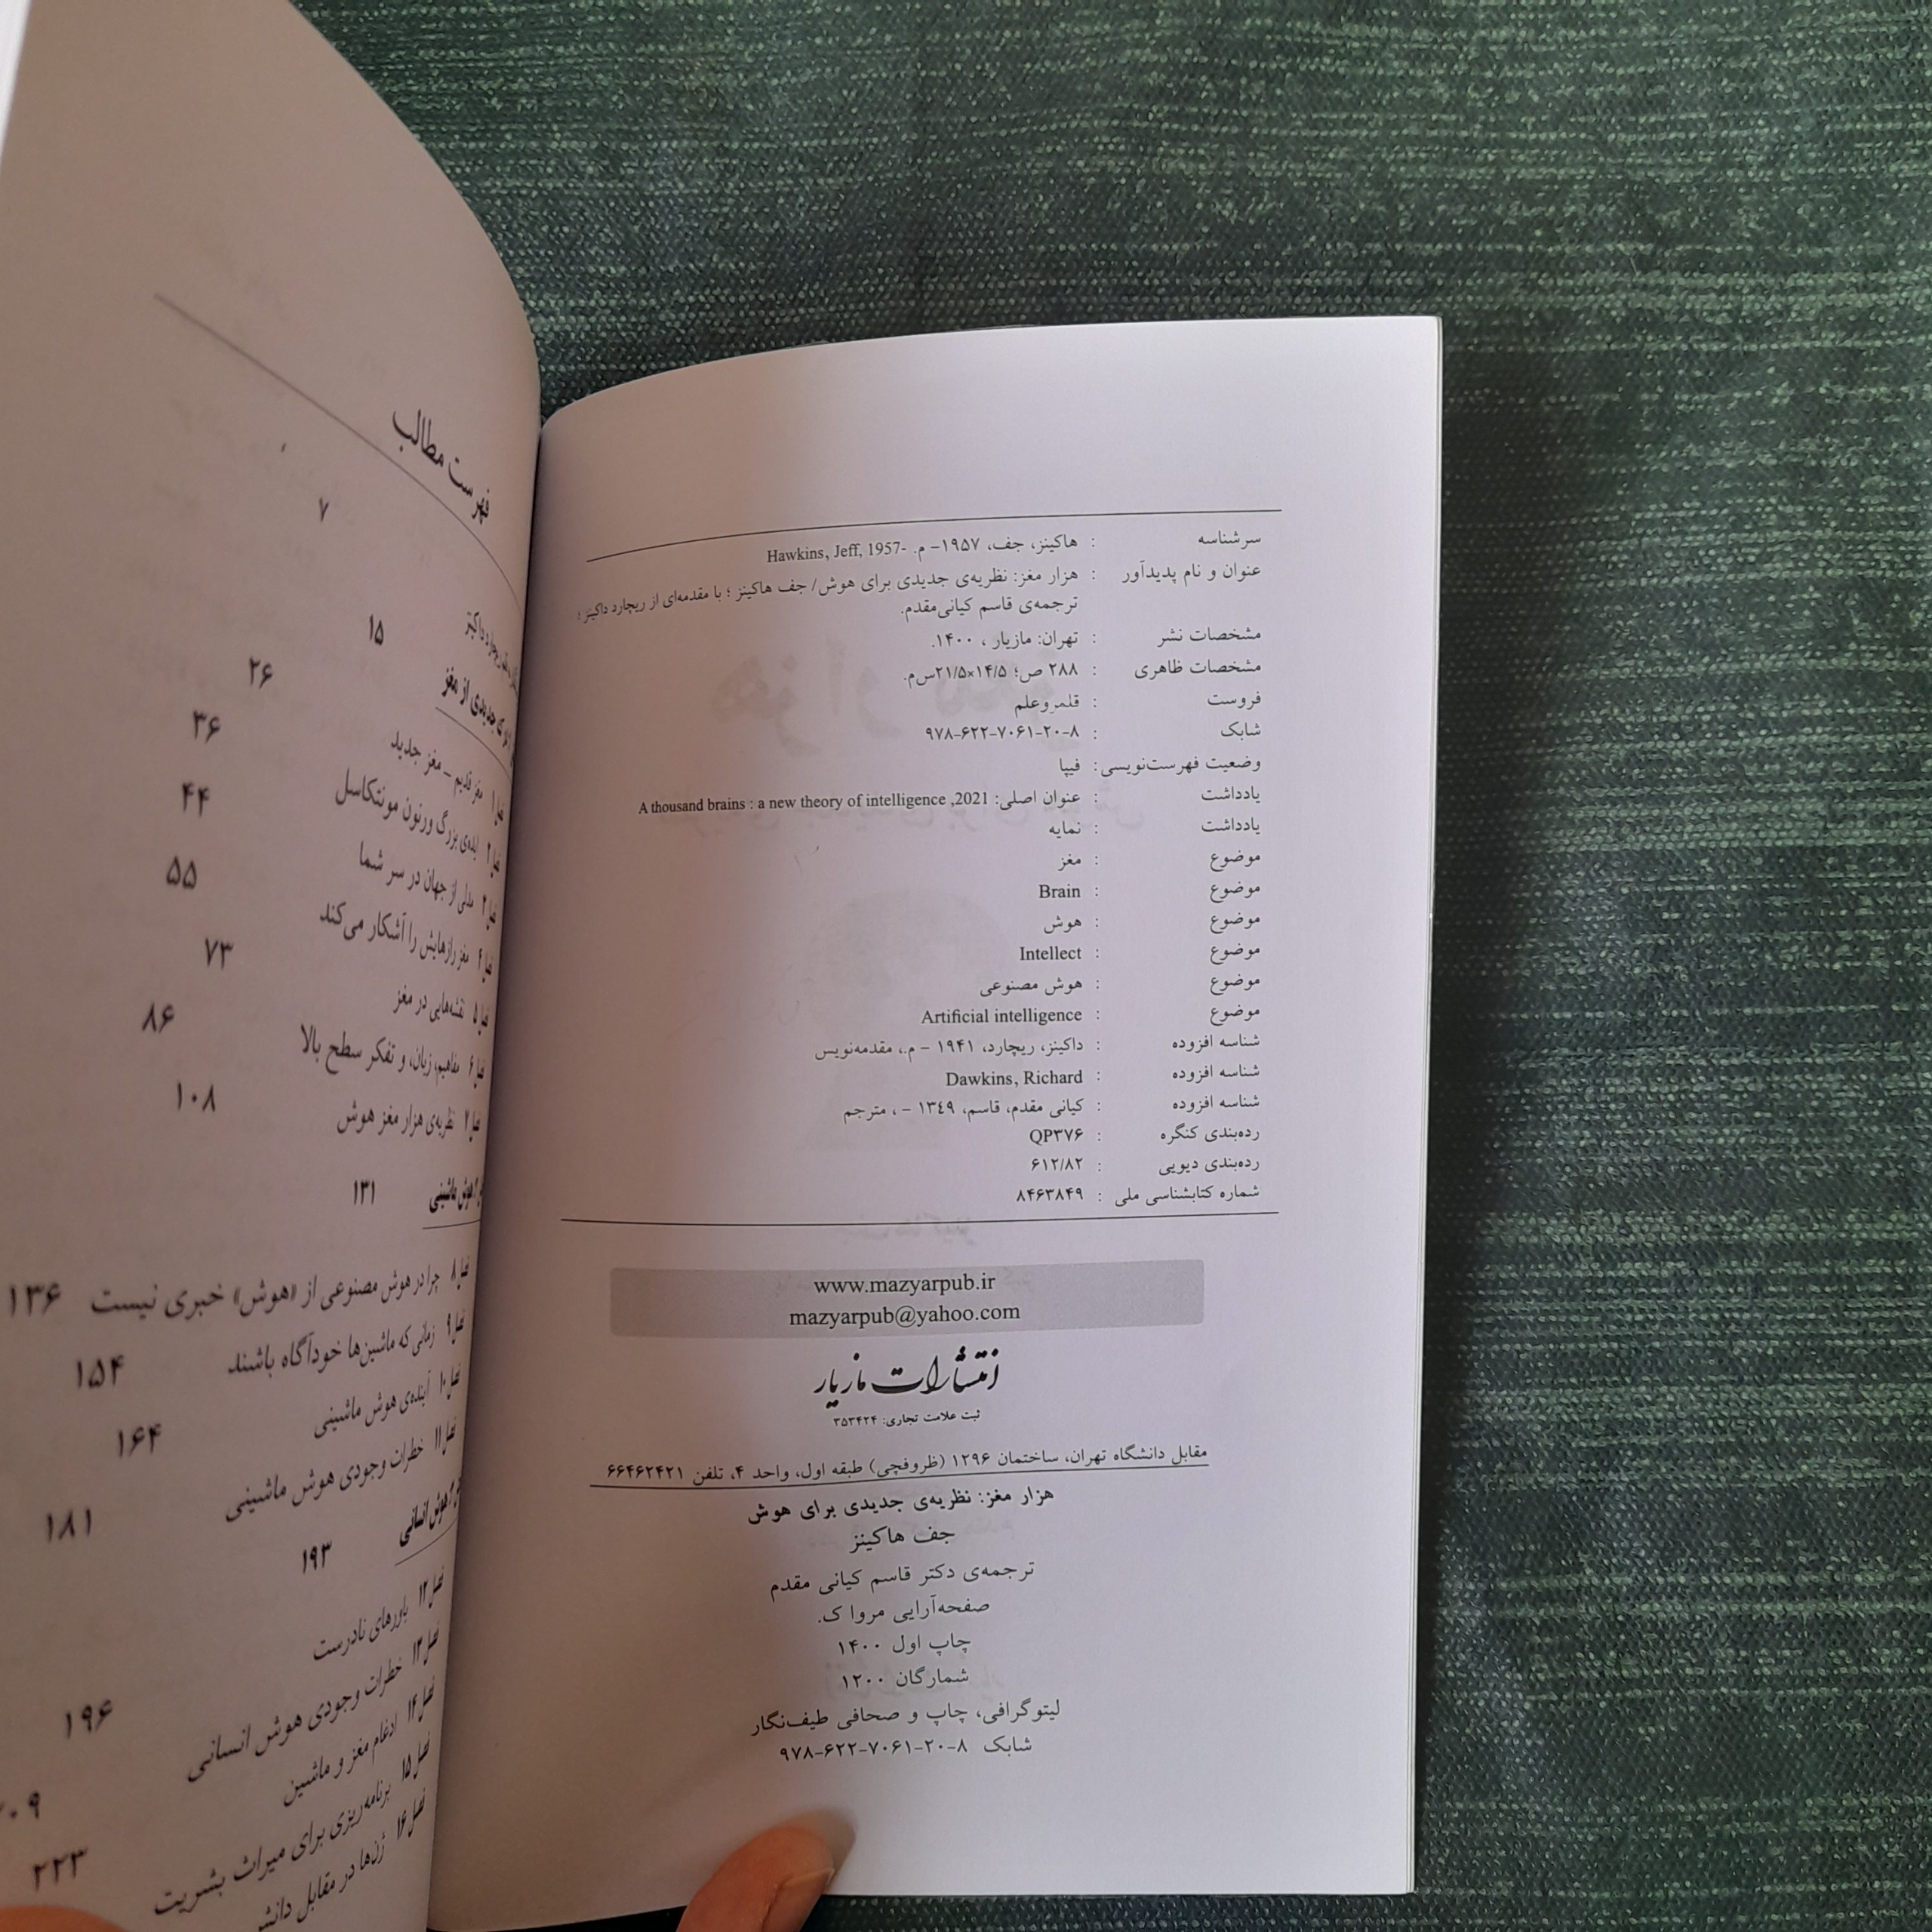 سرشناسه : هاکینز، جف، ۱۹۵۷- م. -Hawkins, Jeff, 1957
عنوان و نام پدیدآور : هزار مغز: نظریه‌ی جدیدی برای هوش/ جف هاکینز ؛ با مقدمه‌ای از ریچارد داکینز ؛
ترجمه‌ی قاسم کیانی‌مقدم.
مشخصات نشر : تهران: مازیار ، ۱۴۰۰.
مشخصات ظاهری : ۲۸۸ ص؛ ۱۴/۵×۲۱/۵س‌م.
فروست : قلمرو علم
شابک : ۹۷۸-۶۲۲-۷۰۶۱-۲۰-۸
وضعیت فهرست‌نویسی : فیپا
یادداشت : عنوان اصلی: A thousand brains : a new theory of intelligence ,2021
یادداشت : نمایه
موضوع : مغز
موضوع : Brain
موضوع : هوش
موضوع : Intellect
موضوع : هوش مصنوعی
موضوع : Artificial intelligence
شناسه افزوده : داکینز، ریچارد، ۱۹۴۱ - م.، مقدمه‌نویس
شناسه افزوده : Dawkins, Richard
شناسه افزوده : کیانی مقدم، قاسم، ۱۳۴۹ - ، مترجم
رده‌بندی کنگره : QP۳۷۶
رده‌بندی دیویی : ۶۱۲/۸۲
شماره کتابشناسی ملی : ۸۴۶۳۸۴۹
www.mazyarpub.ir
mazyarpub@yahoo.com
انتشارات مازیار
ثبت علامت تجاری: ۳۵۳۴۲۴
مقابل دانشگاه تهران، ساختمان ۱۲۹۶ (ظروفچی) طبقه اول، واحد ۴، تلفن ۶۶۴۶۲۴۲۱
هزار مغز: نظریه‌ی جدیدی برای هوش
جف هاکینز
ترجمه‌ی دکتر قاسم کیانی مقدم
صفحه‌آرایی مروا ک.
چاپ اول ۱۴۰۰
شمارگان ۱۲۰۰
لیتوگرافی، چاپ و صحافی طیف‌نگار
شابک ۹۷۸-۶۲۲-۷۰۶۱-۲۰-۸
فهرست مطالب
ریچارد داکینز ۷
جدیدی از مغز ۱۵
فصل ۱ مغز قدیم – مغز جدید ۲۶
فصل ۲ ایده‌ی بزرگ ورنون مونتکاسل ۳۶
فصل ۳ مدلی از جهان در سر شما ۴۴
فصل ۴ مغز رازهایش را آشکار می‌کند ۵۵
فصل ۵ نقشه‌هایی در مغز ۷۳
فصل ۶ مفاهیم، زبان، و تفکر سطح بالا ۸۶
فصل ۷ نظریه‌ی هزار مغز هوش ۱۰۸
هوش ماشینی ۱۳۱
فصل ۸ چرا در هوش مصنوعی از «هوش» خبری نیست ۱۳۶
فصل ۹ زمانی که ماشین‌ها خودآگاه باشند ۱۵۴
فصل ۱۰ آینده‌ی هوش ماشینی ۱۶۴
فصل ۱۱ خطرات وجودی هوش ماشینی ۱۸۱
هوش انسانی ۱۹۳
فصل ۱۲ باورهای نادرست ۱۹۶
فصل ۱۳ خطرات وجودی هوش انسانی
فصل ۱۴ ادغام مغز و ماشین ۲۲۳
فصل ۱۵ برنامه‌ریزی برای میراث بشریت
فصل ۱۶ ژن‌ها در مقابل